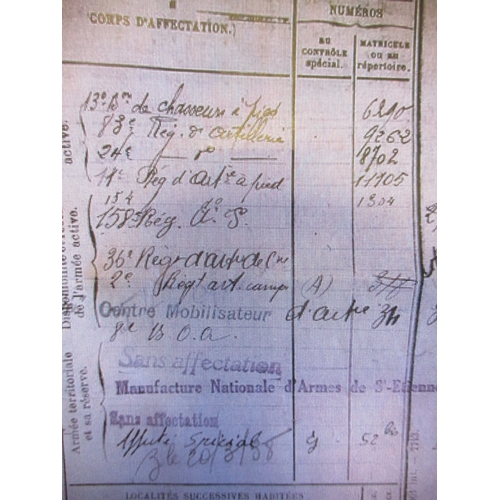 CORPS D'AFFECTATION.)
NUMÉROS
AU CONTRÔLE spécial.
MATRICULE ou au répertoire.
13e Bon de chasseurs à pied 6290
83e Rég. d'artillerie 9262
24e — do — 8702
11e Rég d'Artie à pied 11105
154 1304
158e Rég. A. P.
36e Rég. d'artie de Cne
2e Régt art. camp (A)
Centre Mobilisateur d'artie 34
B.O.A.
Sans affectation
Manufacture Nationale d'Armes de St-Etienne
Sans affectation
Affecté spécial 52
20/3/38
active.
Disponibilité
de l'armée active.
Armée territoriale
et sa réserve.
LOCALITÉS SUCCESSIVES HABITÉES